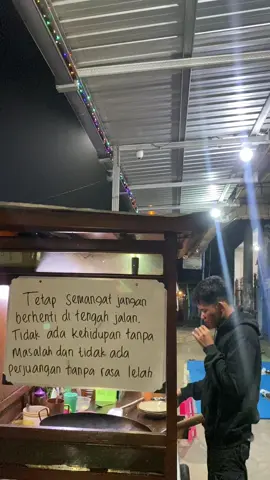 Tetap semangat jangan
berhenti di tengah jalan.
Tidak ada kehidupan tanpa
Masalah dan tidak ada
perjuangan tanpa rasa lelah